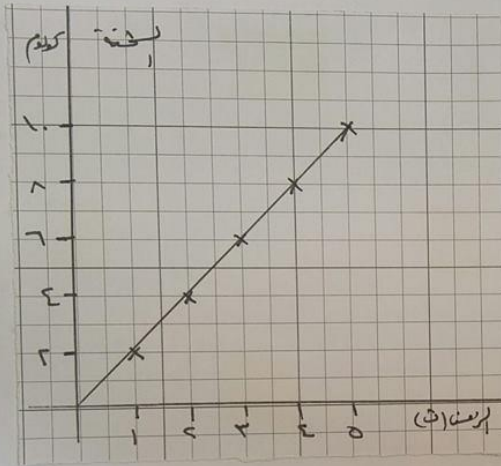 الشحنة
كولوم
١٠
٨
٦
٤
٢
١ ٢ ٣ ٤ ٥
الزمن (ث)